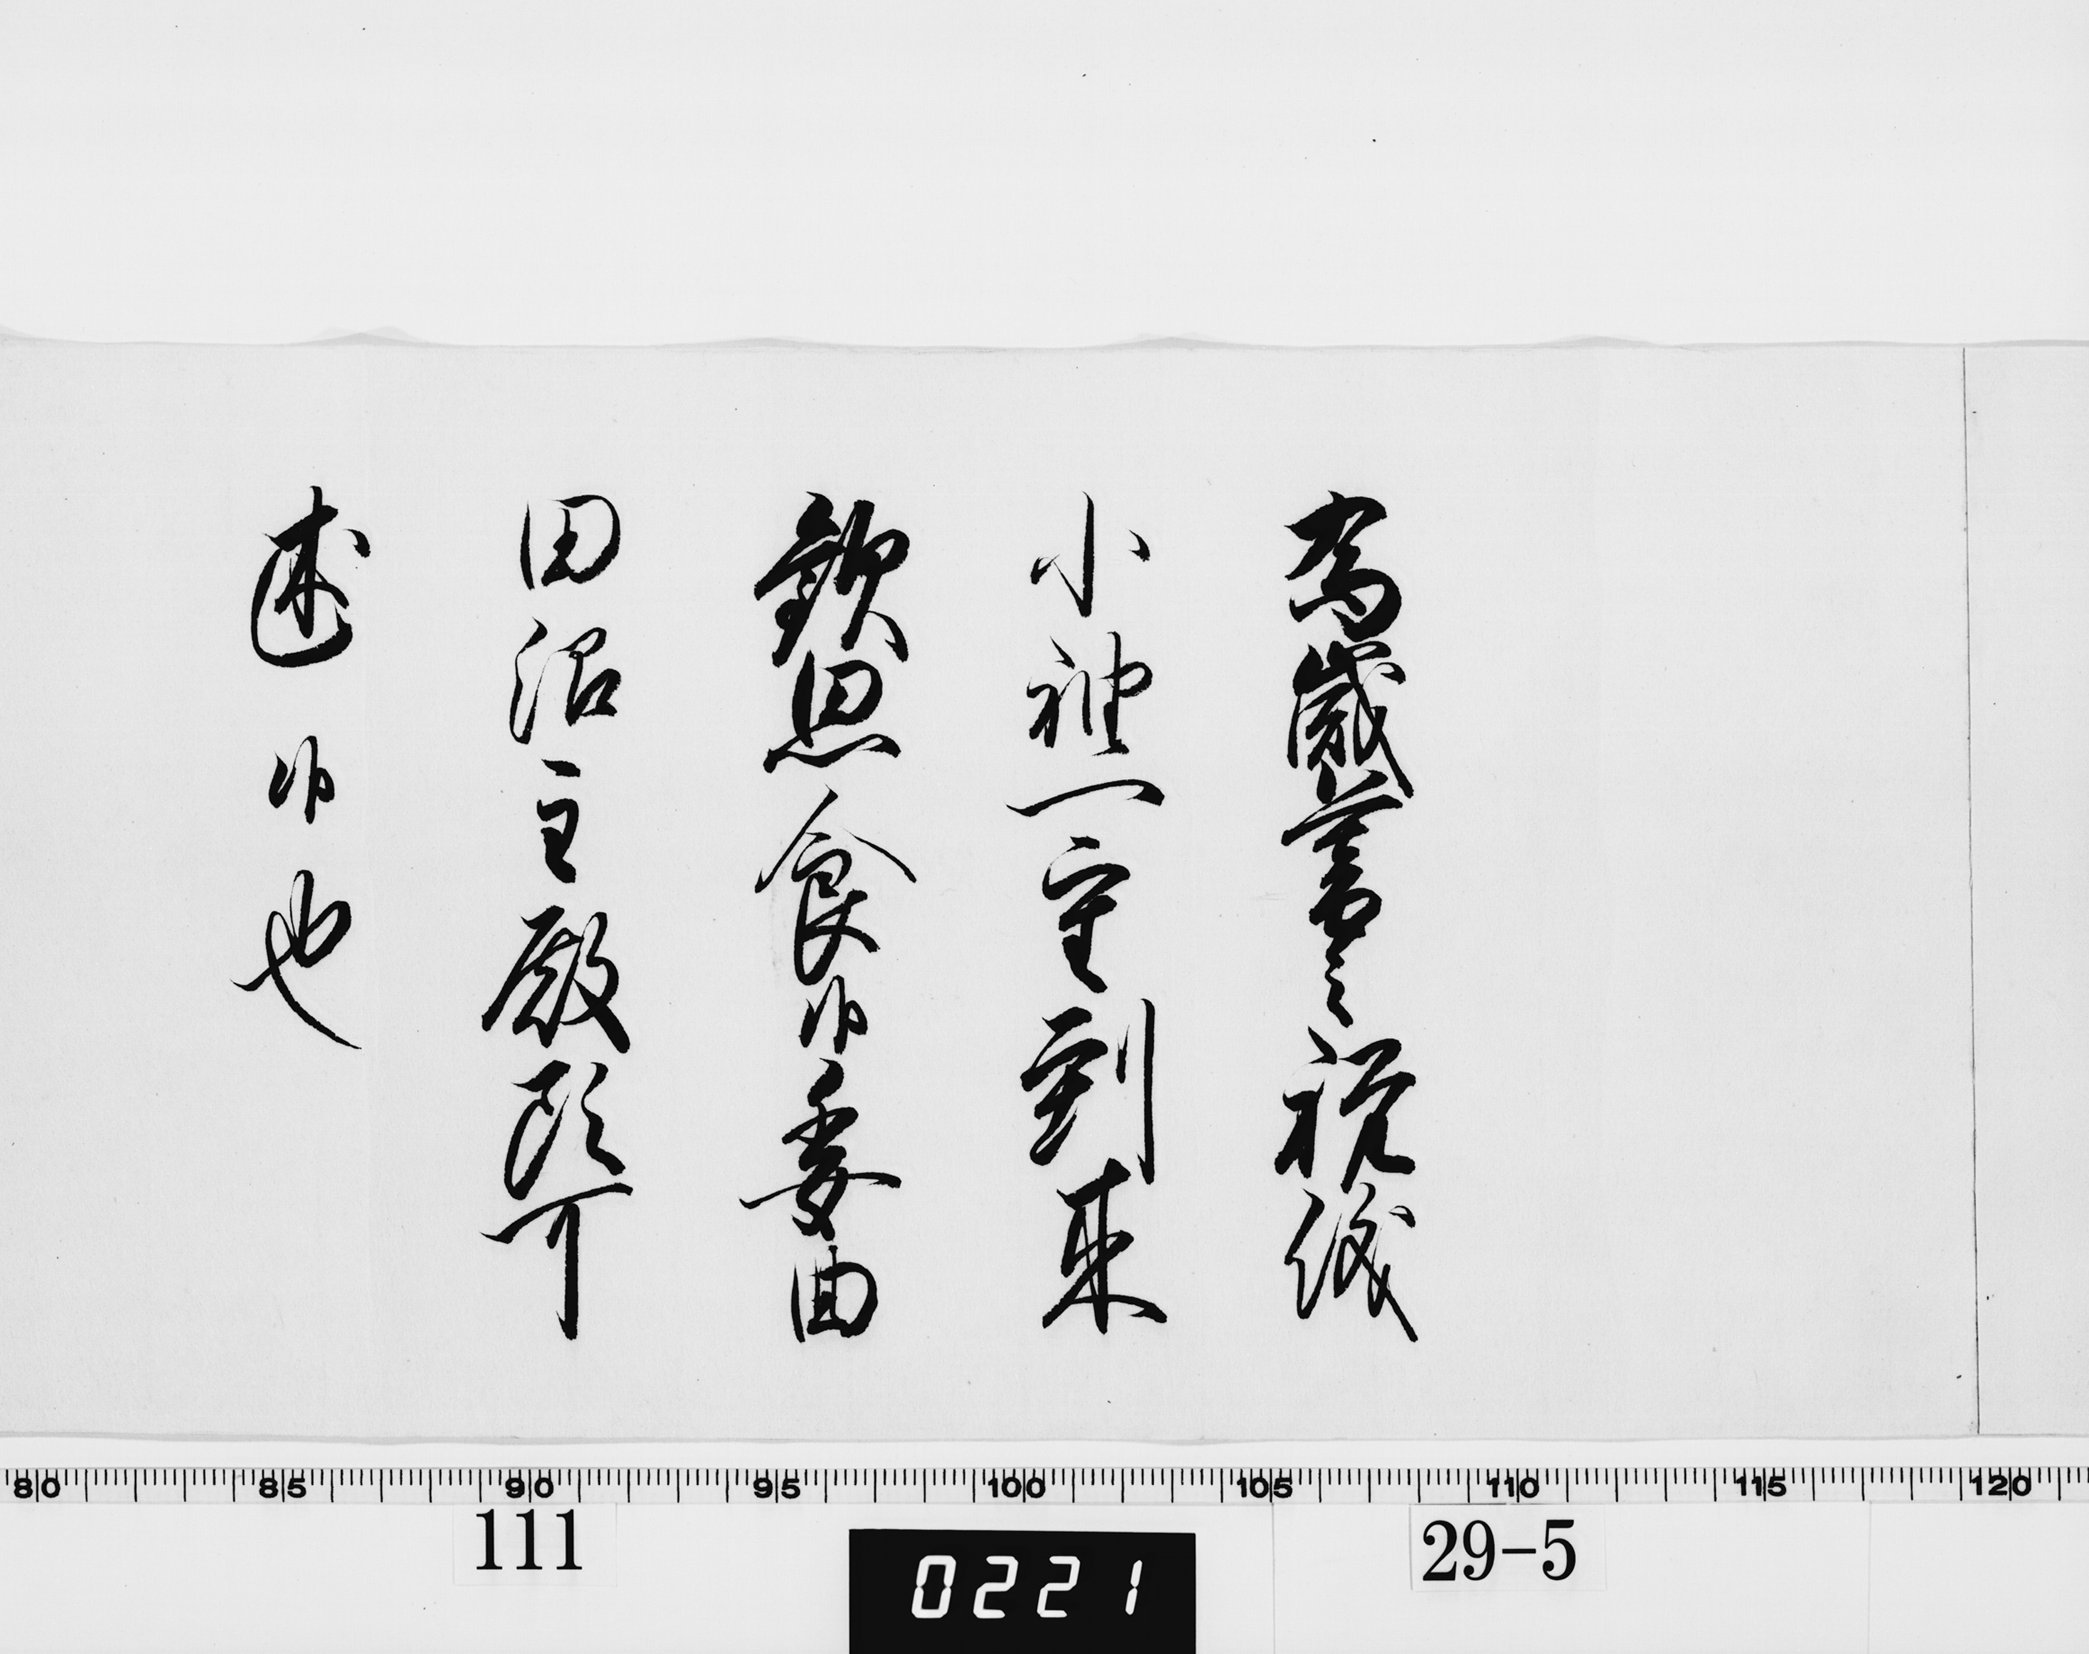 為歳暮之祝儀
小袖一重到来
歓思食候委曲
田沼主殿頭可
述候也
80 85 90 95 100 105 110 115 120
111
0221
29-5